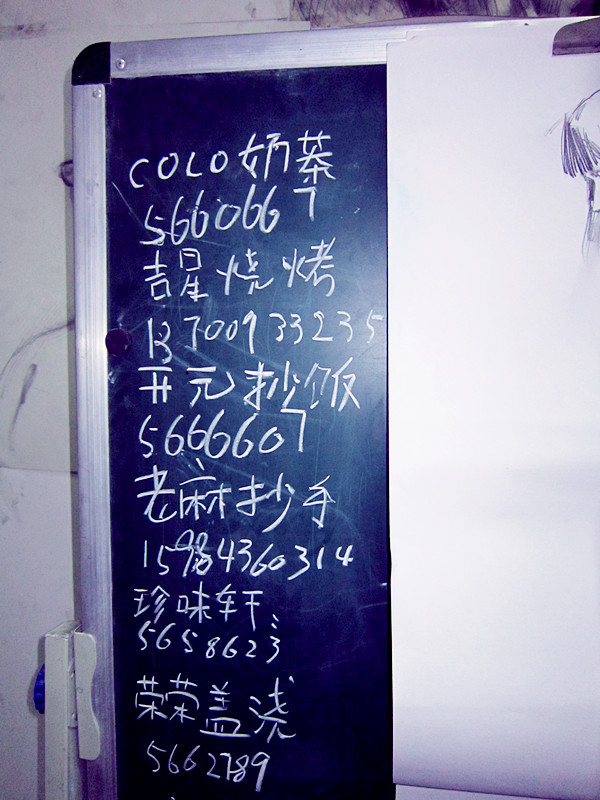 COLO奶茶
5660667
吉星烧烤
13700933235
开元抄饭
5666607
老麻抄手
15984360314
珍味轩:
5658623
荣荣盖浇
5662789